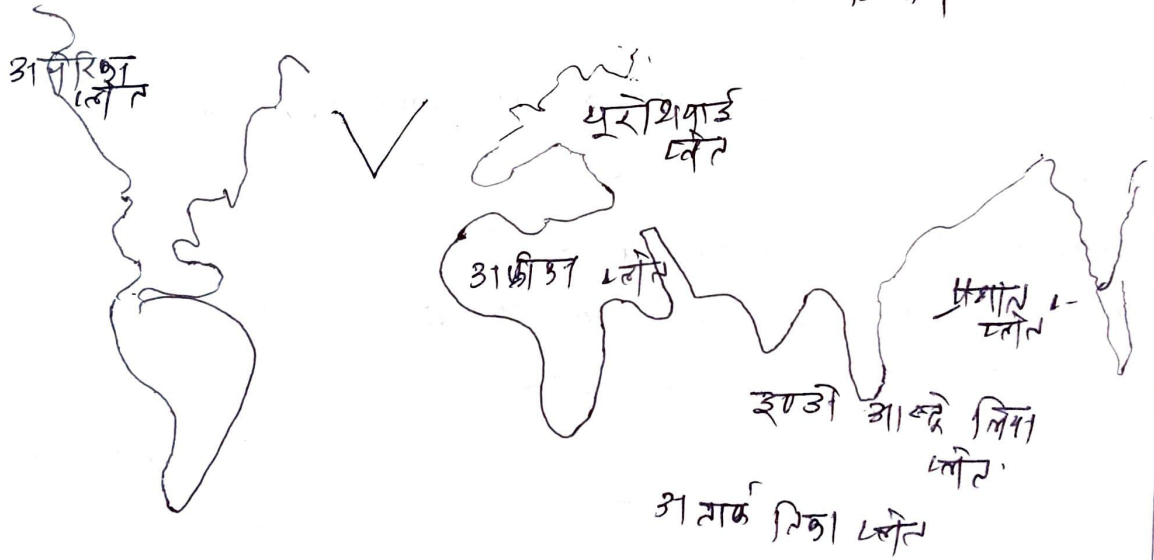 अमेरिका
प्लेत
यूरोशियाई
प्लेत
अफ्रीका प्लेत
प्रशांत
प्लेत
इण्डो आस्ट्रेलिया
प्लेत
अंतार्कतिका प्लेत